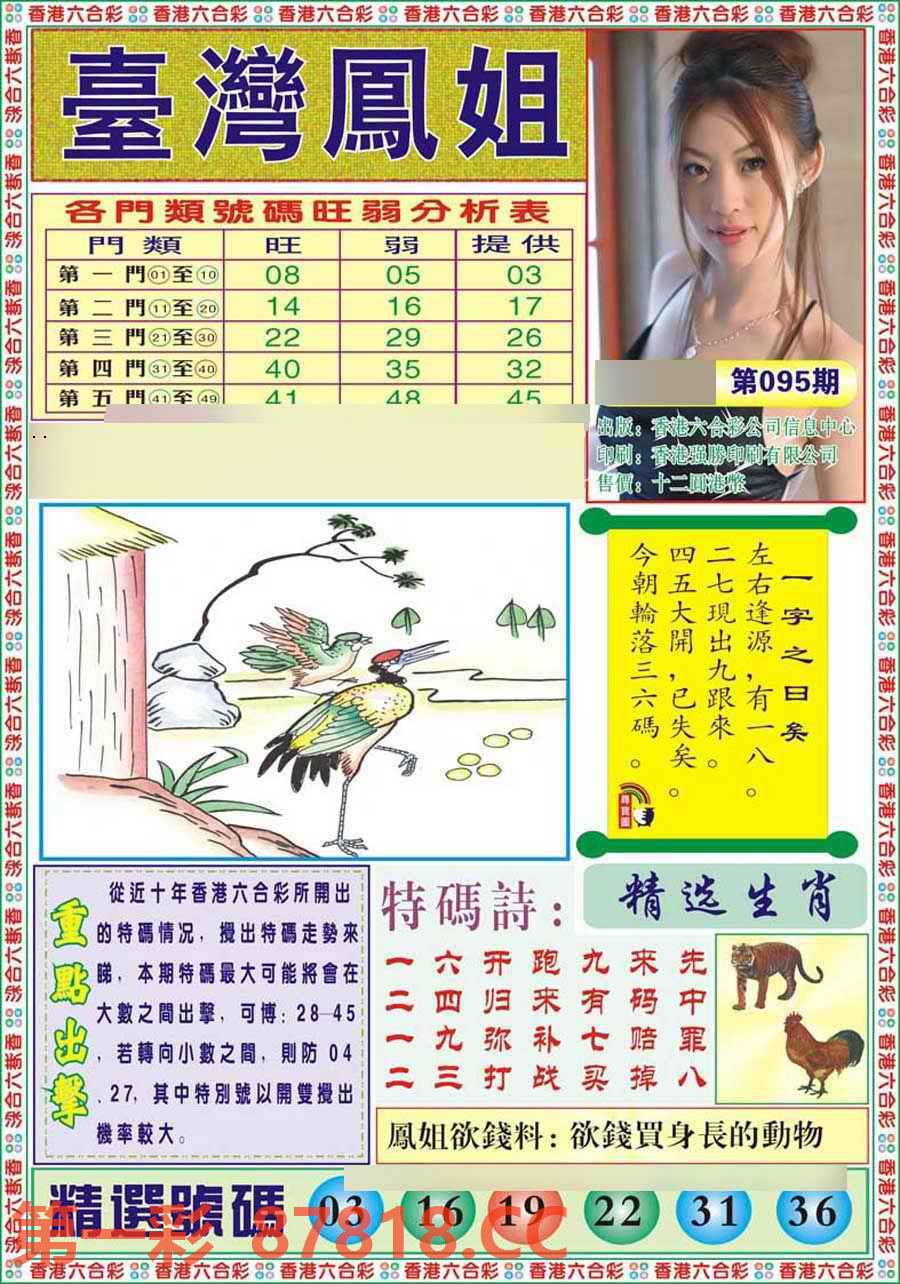 香港六合彩 香港六合彩 香港六合彩 香港六合彩 香港六合彩 香港六合彩 香港六合彩
臺灣鳳姐
各門類號碼旺弱分析表
門類 旺 弱 提供
第一門01至10 08 05 03
第二門11至20 14 16 17
第三門21至30 22 29 26
第四門31至40 40 35 32
第五門41至49 41 48 45
第095期
出版：香港六合彩公司信息中心
印刷：香港强勝印刷有限公司
售價：十二圓港幣
一字之曰矣
左右逢源，有一八。
二七現出九跟來。
四五大開，已失矣。
今朝輪落三六碼。
尋寶圖
重點出擊
從近十年香港六合彩所開出
的特碼情况，攪出特碼走勢來
睇，本期特碼最大可能將會在
大數之間出擊，可博：28—45
，若轉向小數之間，則防 04
、27，其中特別號以開雙攪出
機率較大。
特碼詩：
一六开跑九来先
二四归来有码中
一九弥补七赔罪
二三打战买掉八
精选生肖
鳳姐欲錢料：欲錢買身長的動物
精選號碼 03 16 19 22 31 36
第一彩 87818.CC
香港六合彩 香港六合彩 香港六合彩 香港六合彩 香港六合彩 香港六合彩 香港六合彩